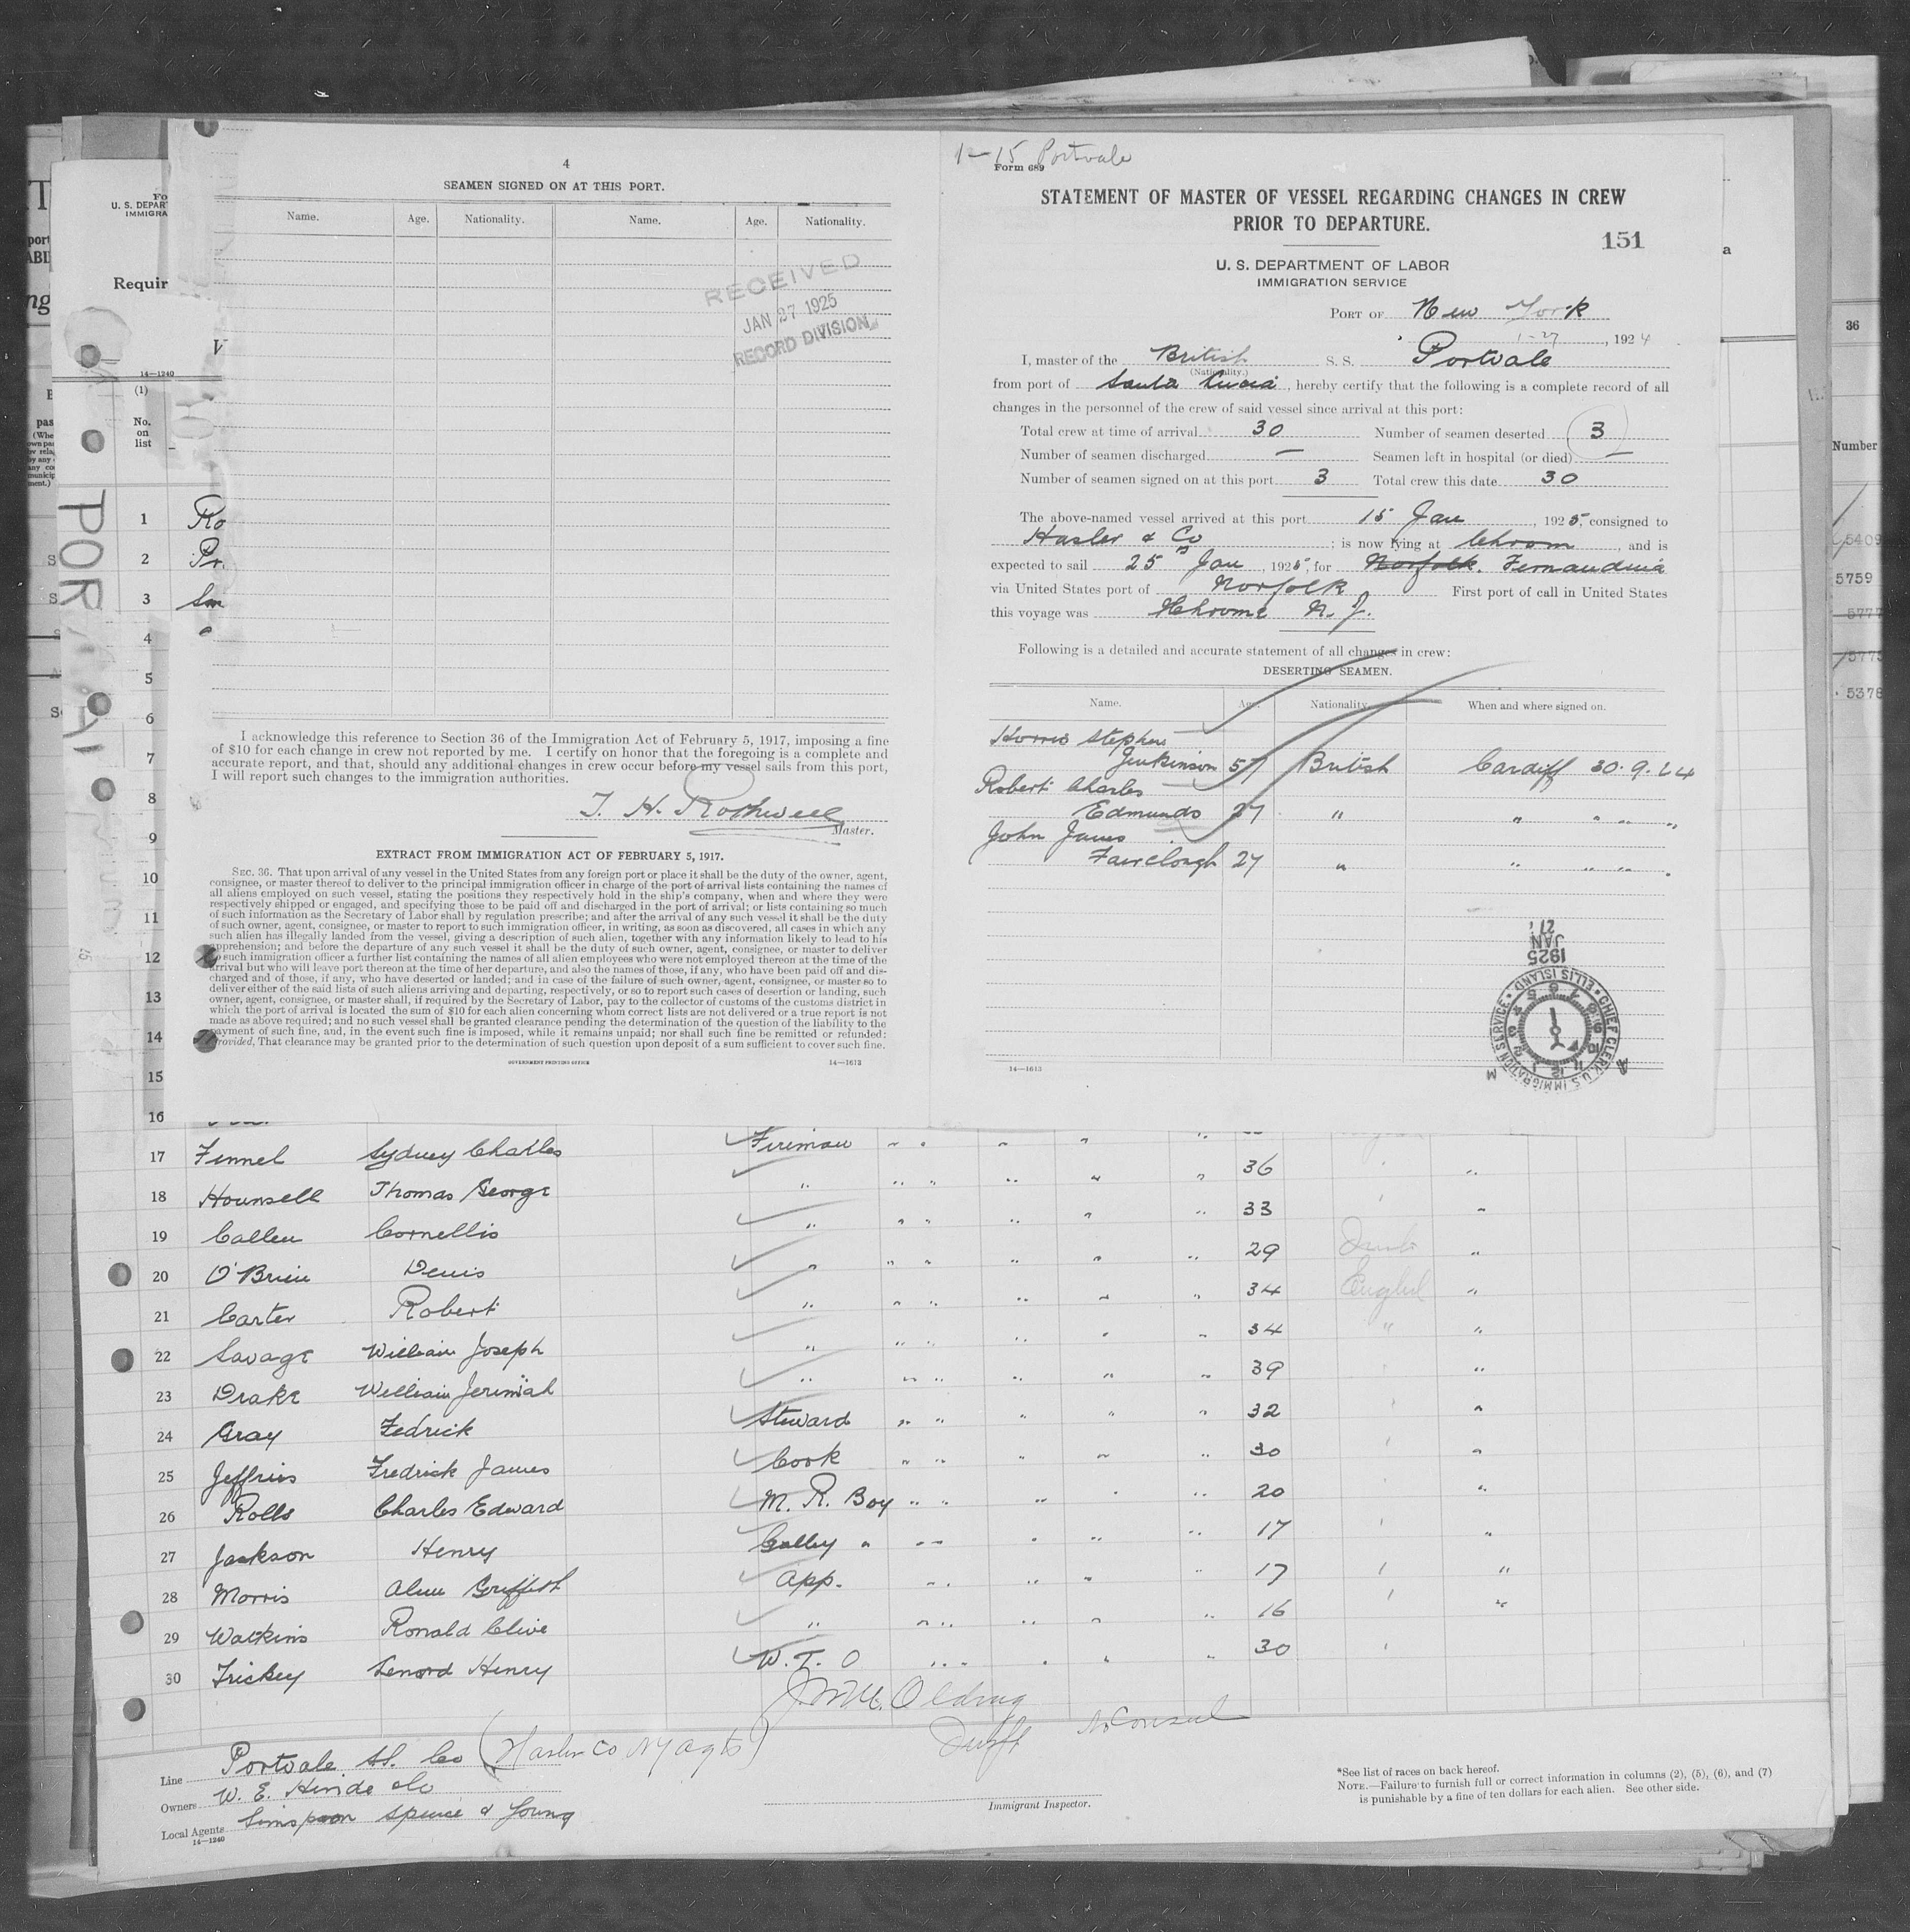 4
SEAMEN SIGNED ON AT THIS PORT.
Name. Age. Nationality. Name. Age. Nationality.
RECEIVED
JAN 27 1925
RECORD DIVISION
I acknowledge this reference to Section 36 of the Immigration Act of February 5, 1917, imposing a fine
of $10 for each change in crew not reported by me. I certify on honor that the foregoing is a complete and
accurate report, and that, should any additional changes in crew occur before my vessel sails from this port,
I will report such changes to the immigration authorities.
T. H. Rothwell
Master.
EXTRACT FROM IMMIGRATION ACT OF FEBRUARY 5, 1917.
SEC. 36. That upon arrival of any vessel in the United States from any foreign port or place it shall be the duty of the owner, agent,
consignee, or master thereof to deliver to the principal immigration officer in charge of the port of arrival lists containing the names of
all aliens employed on such vessel, stating the positions they respectively hold in the ship's company, when and where they were
respectively shipped or engaged, and specifying those to be paid off and discharged in the port of arrival; or lists containing so much
of such information as the Secretary of Labor shall by regulation prescribe; and after the arrival of any such vessel it shall be the duty
of such owner, agent, consignee, or master to report to such immigration officer, in writing, as soon as discovered, all cases in which any
such alien has illegally landed from the vessel, giving a description of such alien, together with any information likely to lead to his
apprehension; and before the departure of any such vessel it shall be the duty of such owner, agent, consignee, or master to deliver
to such immigration officer a further list containing the names of all alien employees who were not employed thereon at the time of the
arrival but who will leave port thereon at the time of her departure, and also the names of those, if any, who have been paid off and dis-
charged and of those, if any, who have deserted or landed; and in case of the failure of such owner, agent, consignee, or master so to
deliver either of the said lists of such aliens arriving and departing, respectively, or so to report such cases of desertion or landing, such
owner, agent, consignee, or master shall, if required by the Secretary of Labor, pay to the collector of customs of the customs district in
which the port of arrival is located the sum of $10 for each alien concerning whom correct lists are not delivered or a true report is not
made as above required; and no such vessel shall be granted clearance pending the determination of the question of the liability to the
payment of such fine, and, in the event such fine is imposed, while it remains unpaid; nor shall such fine be remitted or refunded:
Provided, That clearance may be granted prior to the determination of such question upon deposit of a sum sufficient to cover such fine.
GOVERNMENT PRINTING OFFICE 14—1613
1-15 Portvale
Form 689
STATEMENT OF MASTER OF VESSEL REGARDING CHANGES IN CREW
PRIOR TO DEPARTURE.
151
U. S. DEPARTMENT OF LABOR
IMMIGRATION SERVICE
PORT OF New York
1-27, 1924
I, master of the British S. S. Portvale
(Nationality.)
from port of Santa Lucia, hereby certify that the following is a complete record of all
changes in the personnel of the crew of said vessel since arrival at this port:
Total crew at time of arrival 30 Number of seamen deserted 3
Number of seamen discharged — Seamen left in hospital (or died) —
Number of seamen signed on at this port 3 Total crew this date 30
The above-named vessel arrived at this port 15 Jan, 1925, consigned to
Hasler & Co; is now lying at Chrom, and is
expected to sail 25 Jan, 1925, for Norfolk. Fernandina
via United States port of Norfolk First port of call in United States
this voyage was Chrome N. J.
Following is a detailed and accurate statement of all changes in crew:
DESERTING SEAMEN.
Name. Age. Nationality. When and where signed on.
Horris Stephen
Jenkinson 57 British Cardiff 30.9.24
Robert Charles
Edmunds 27 " " " "
John James
Fairclough 27 " " " "
14—1613
27
JAN
1925
CHIEF CLERK, U.S. IMMIGRATION SERVICE • ELLIS ISLAND
A M
U. S. DEPAR
IMMIGRA
Requir
14—1240
(1)
No.
on
list
POR
1 Ro
2 Pr.
3 Sm
4
5
6
7
8
9
10
11
12
13
14
15
16
17 Fennel Sydney Charles Fireman
18 Hounsell Thomas George " 36
19 Callen Cornellis " 33
20 O'Brien Denis " 29
21 Carter Robert " 34 English
22 Savage William Joseph " 34
23 Drake William Jerimiah " 39
24 Gray Fedrick Steward 32
25 Jeffries Fredrick James Cook 30
26 Rolls Charles Edward M. R. Boy 20
27 Jackson Henry Galley " 17
28 Morris Alun Griffith App. 17
29 Watkins Ronald Clive " 16
30 Trickey Lenord Henry W. T. O 30
Line Portvale SS. Co (Hasler Co NY agts)
Owners W. E. Hinde & Co
Local Agents Simpson Spence & Young
14—1240
Immigrant Inspector.
*See list of races on back hereof.
NOTE.—Failure to furnish full or correct information in columns (2), (5), (6), and (7)
is punishable by a fine of ten dollars for each alien. See other side.
36
Number
5409
5759
5777
5775
5378